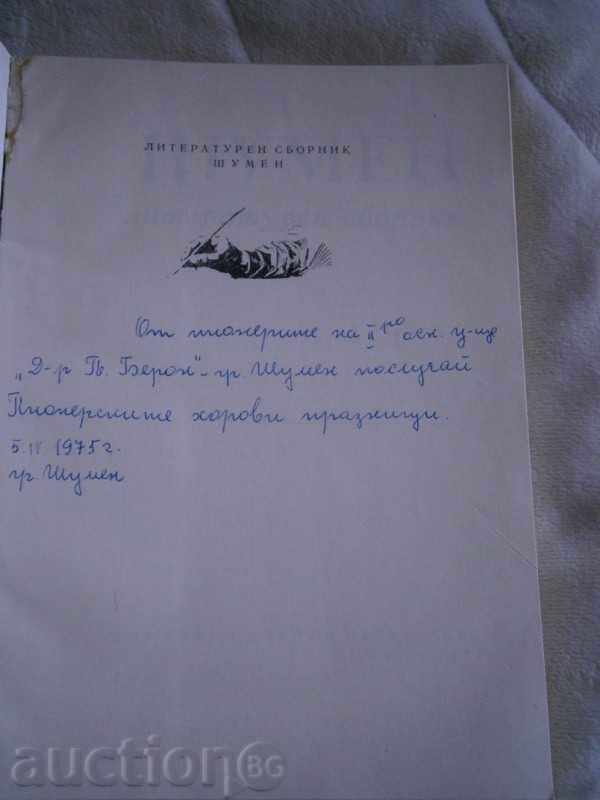 ЛИТЕРАТУРЕН СБОРНИК
ШУМЕН
От пионерите на II ро осн. у-ще
„Д-р П. Берон" - гр. Шумен по случай
Пионерските хорови празници.
5.IV 1975 г.
гр. Шумен
auctionBG